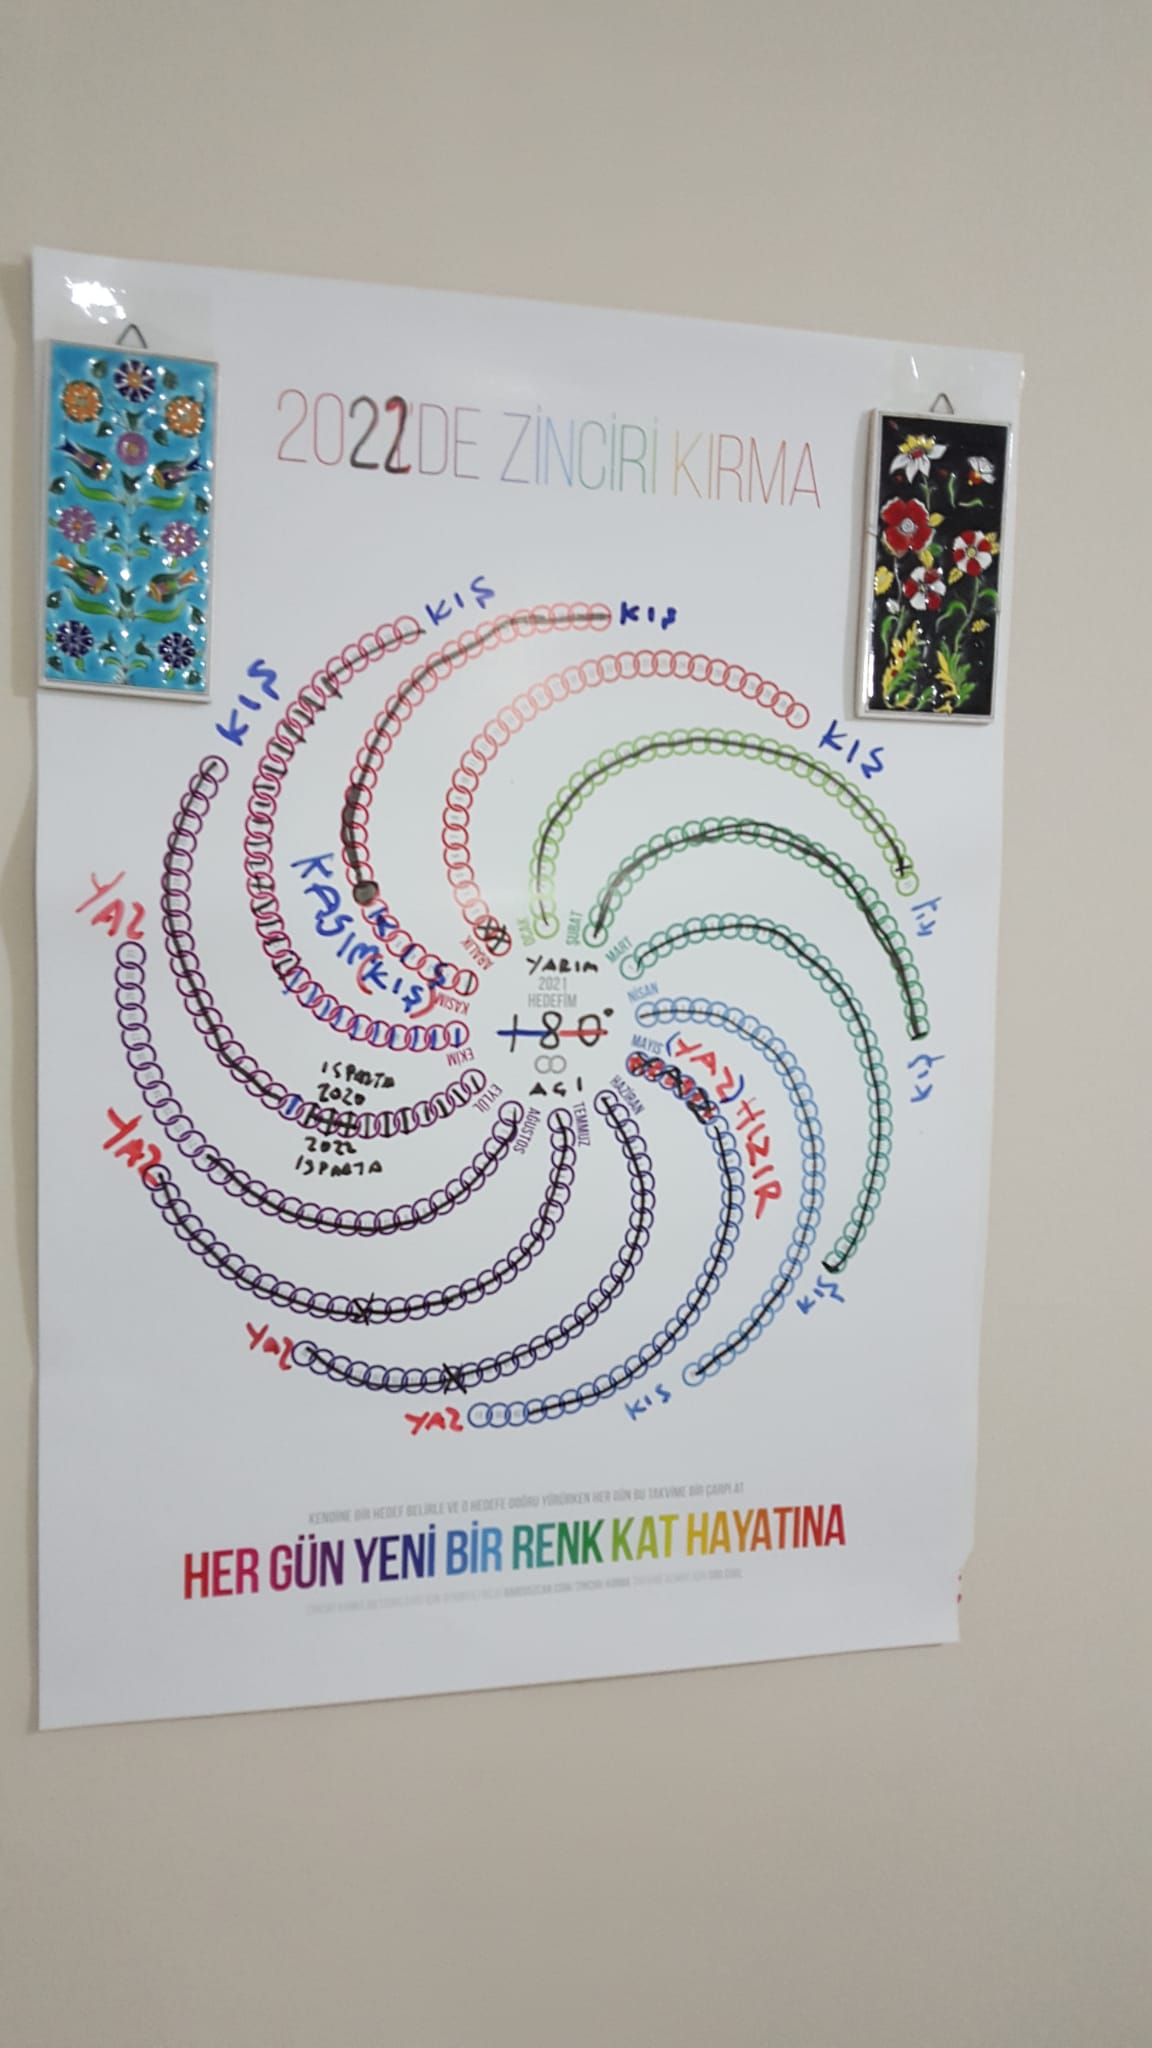 2022'DE ZİNCİRİ KIRMA
KIŞ
KIŞ
KIŞ
KIŞ
KIŞ
KIŞ
KIŞ
KIŞ
YAZ
YAZ
YAZ
YAZ
KASIM
(KIŞ)
KIŞ
OCAK
ŞUBAT
MART
NİSAN
MAYIS (YAZ) HIZIR
YAZ
HAZİRAN
TEMMUZ
AĞUSTOS
EYLÜL
EKİM
KASIM
ARALIK
YARIM
2021
HEDEFİM
180°
AÇI
ISPARTA
2020
2022
ISPARTA
KENDİNE BİR HEDEF BELİRLE VE O HEDEFE DOĞRU YÜRÜRKEN HER GÜN BU TAKVİME BİR ÇARPI AT
HER GÜN YENİ BİR RENK KAT HAYATINA